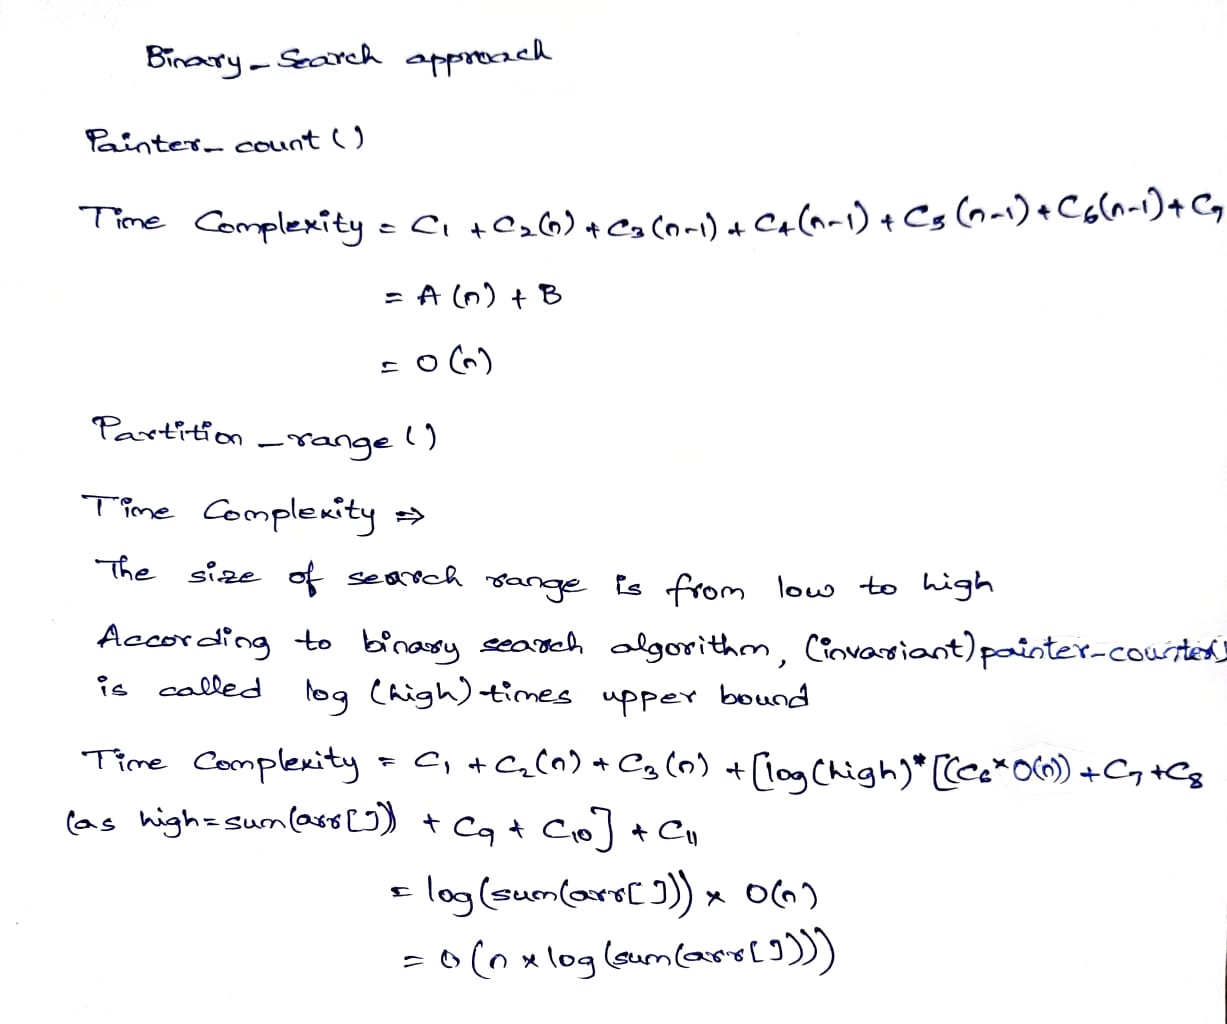 Binary_Search approach
Painter_count ()
Time Complexity = C1 + C2(n) + C3(n-1) + C4(n-1) + C5(n-1) + C6(n-1) + C7
= A(n) + B
= O(n)
Partition_range ()
Time Complexity ⇒
The size of search range is from low to high
According to binary search algorithm, (invariant) painter-counter()
is called log (high) times upper bound
Time Complexity = C1 + C2(n) + C3(n) + [log(high)* [(C6*O(n)) + C7 + C8
(as high = sum(arr[])) + C9 + C10] + C11
= log(sum(arr[])) x O(n)
= O(n x log(sum(arr[])))